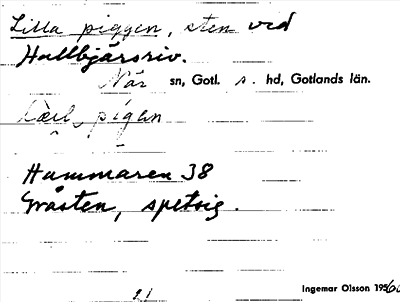 Lilla piggen, sten vid
Hallbjärsriv.
När sn, Gotl. s. hd, Gotlands län.
pigan
Hammaren 38
Gråsten, spetsig.
Ingemar Olsson 1960
21